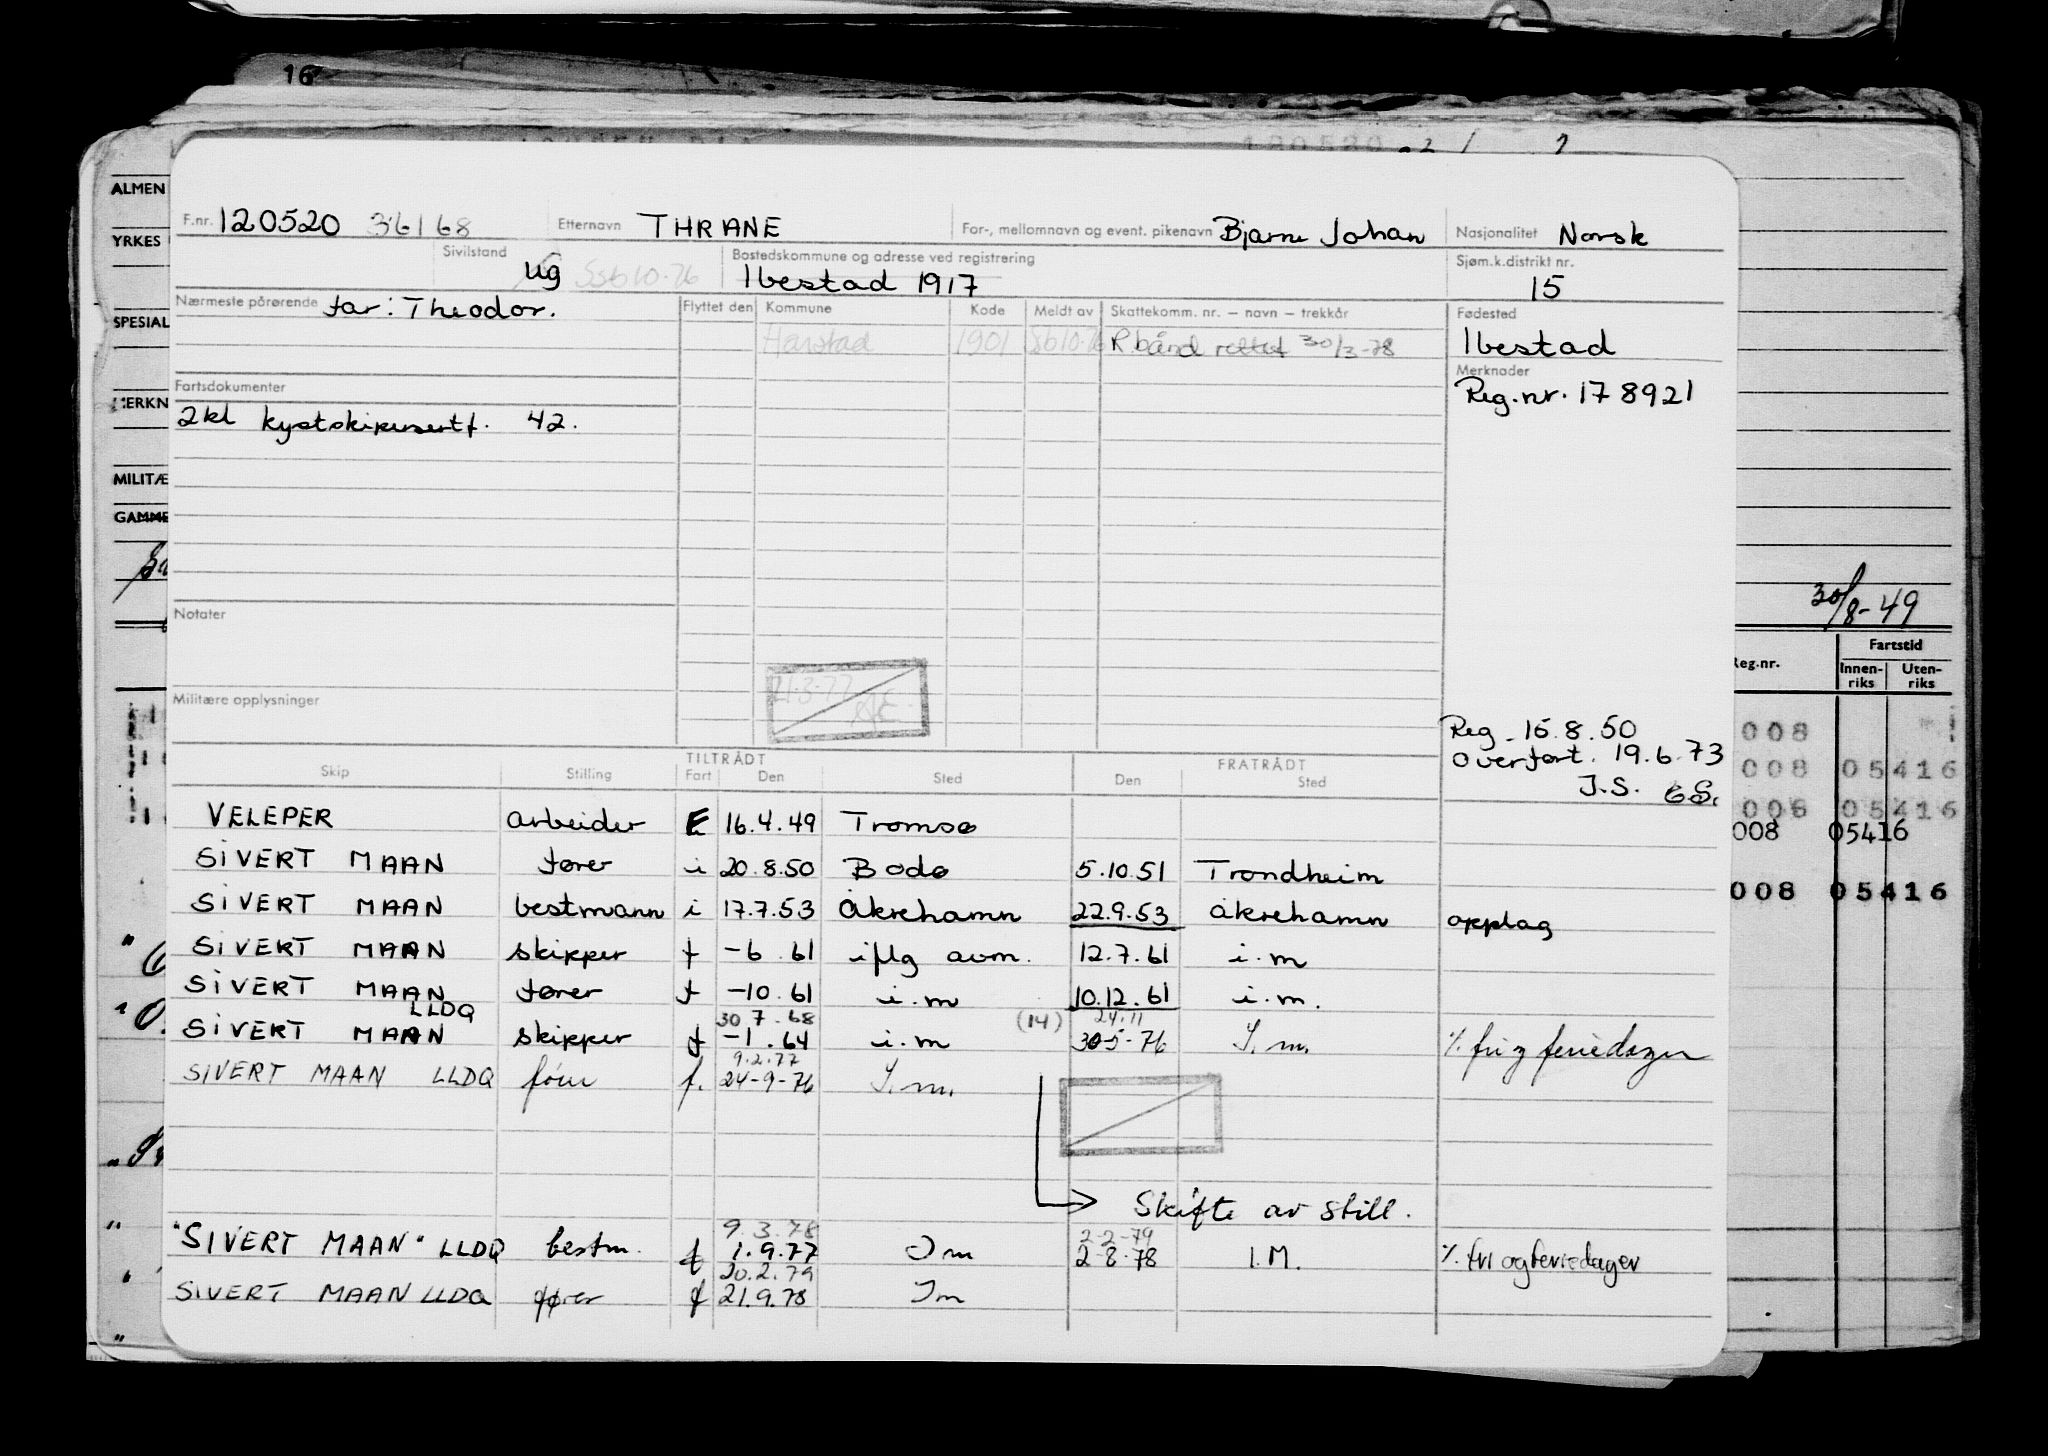 16
120520
ALMEN
YRKES
SPESIAL
MERKN
MILITÆ
GAMME
F.nr. 120520 36168 Etternavn THRANE For-, mellomnavn og event. pikenavn Bjarne Johan Nasjonalitet Norsk
Sivilstand ug Ssb 10-76 Bostedskommune og adresse ved registrering Ibestad 1917 Sjøm.k.distrikt nr. 15
Nærmeste pårørende far: Theodor. Flyttet den Kommune Kode Meldt av Skattekomm. nr. – navn – trekkår Fødested
Harstad 1901 Ssb 10-76 R.bånd rettet 30/3-78 Ibestad
Fartsdokumenter Merknader
Reg.nr. 178921
2kl kystskippersertf. 42.
Notater
21.3.77
Militære opplysninger
Reg. 16.8.50
overført. 19.6.73
J.S.
TILTRÅDT FRATRÅDT
Skip Stilling Fart Den Sted Den Sted
VELEPER arbeider E 16.4.49 Tromsø
SIVERT MAAN fører i 20.8.50 Bodø 5.10.51 Trondheim
SIVERT MAAN bestmann i 17.7.53 Åkrehamn 22.9.53 Åkrehamn opplag
SIVERT MAAN skipper f -6.61 iflg avm. 12.7.61 i.m
SIVERT MAAN fører f -10.61 i.m 10.12.61 i.m.
LLDQ 30.7.68 (14) 24.11
SIVERT MAAN skipper f -1.64 i.m 30-5-76 I.m. % fri og feriedager
9.2.77
SIVERT MAAN LLDQ fører f. 24-9-76 I.m.
Skifte av still.
9.3.78 2-2-79
"SIVERT MAAN" LLDQ bestm. f 1.9.77 Im 2-8-78 I.M. % fri og feriedager
20.2.79
SIVERT MAAN LLDQ fører f 21.9.78 Im
30/8-49
Reg.nr. Fartstid
Innen-riks Uten-riks
008
008 05416
008 05416
008 05416
008 05416